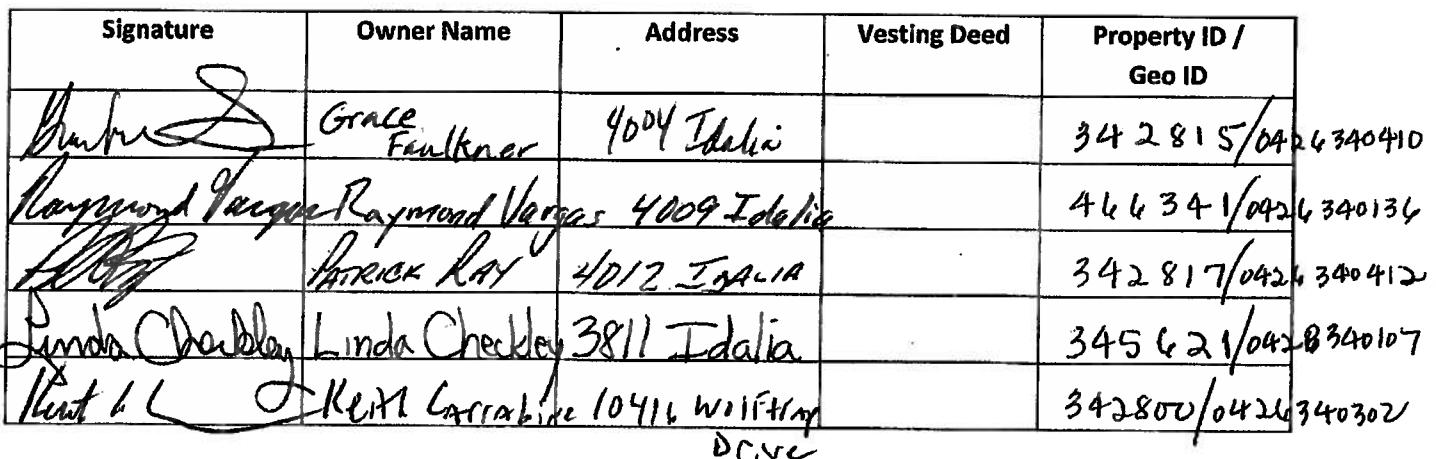 Signature Owner Name Address Vesting Deed Property ID /
Geo ID
Grace
Faulkner 4004 Idalia 342815/0426340410
Raymond Vargas Raymond Vargas 4009 Idalia 466341/0426340136
PATRICK RAY 4012 IDALIA 342817/0426340412
Linda Checkley Linda Checkley 3811 Idalia 345621/0428340107
Keith 10416 342800/0426340302
Drive